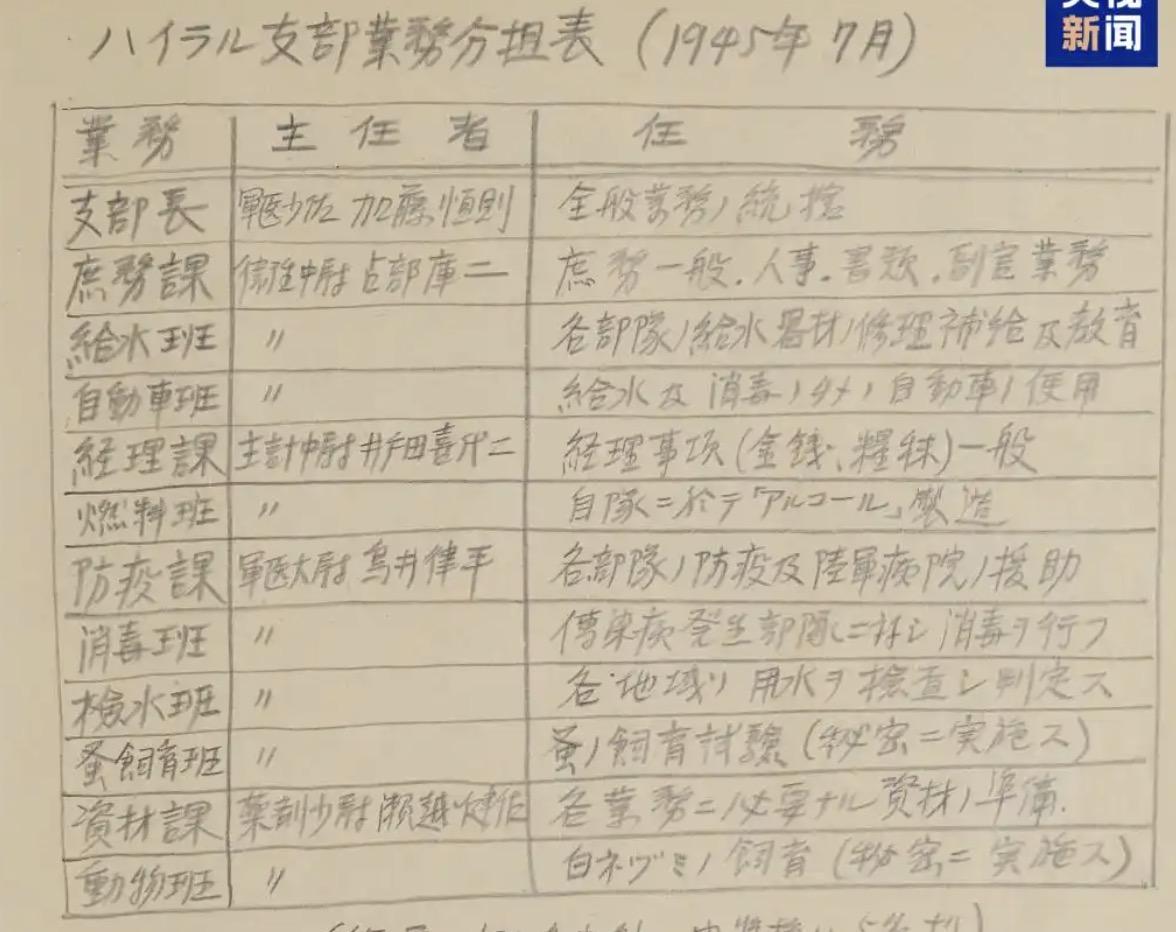 央视
新闻
ハイラル支部業務分担表（1945年7月）
業務 主任者 任務
支部長 軍医少佐 加藤恒則 全般業務ノ統括
庶務課 衛生中尉 占部庫二 庶務一般．人事．書類．副官業務
給水班 〃 各部隊ノ給水器材ノ修理補給及教育
自動車班 〃 給水及消毒ノタメノ自動車ノ使用
経理課 主計中尉 井田喜代二 経理事項(金銭、糧秣)一般
燃料班 〃 自隊ニ於テ「アルコール」製造
防疫課 軍医大尉 鳥井律平 各部隊ノ防疫及陸軍病院ノ援助
消毒班 〃 傳染病発生部隊ニ対シ消毒ヲ行フ
検水班 〃 各地域ノ用水ヲ検査シ判定ス
蚤飼育班 〃 蚤ノ飼育試験(秘密ニ実施ス)
資材課 薬剤少尉 瀬越健佑 各業務ニ必要ナル資材ノ準備.
動物班 〃 白ネヅミノ飼育(秘密ニ実施ス)